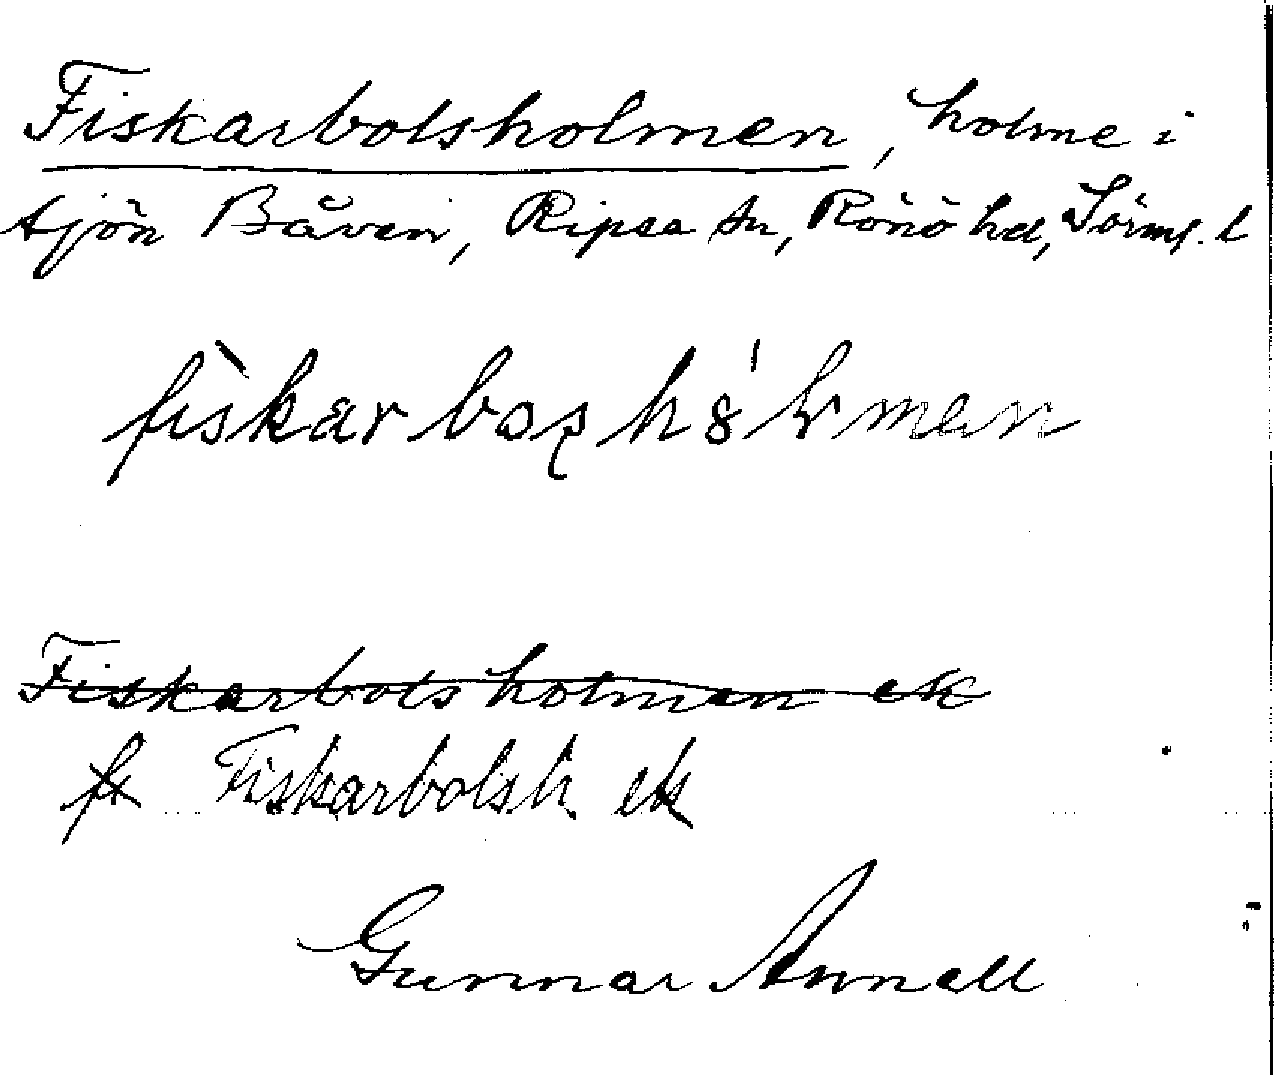 Fiskarbolsholmen, holme i
sjön Båven, Ripsa sn, Rönö hd, Sörml. l
fìskarbosh8́lmen
Fiskarbolsholmen ek
fr Fiskarbolsh ek
Gunnar Annell